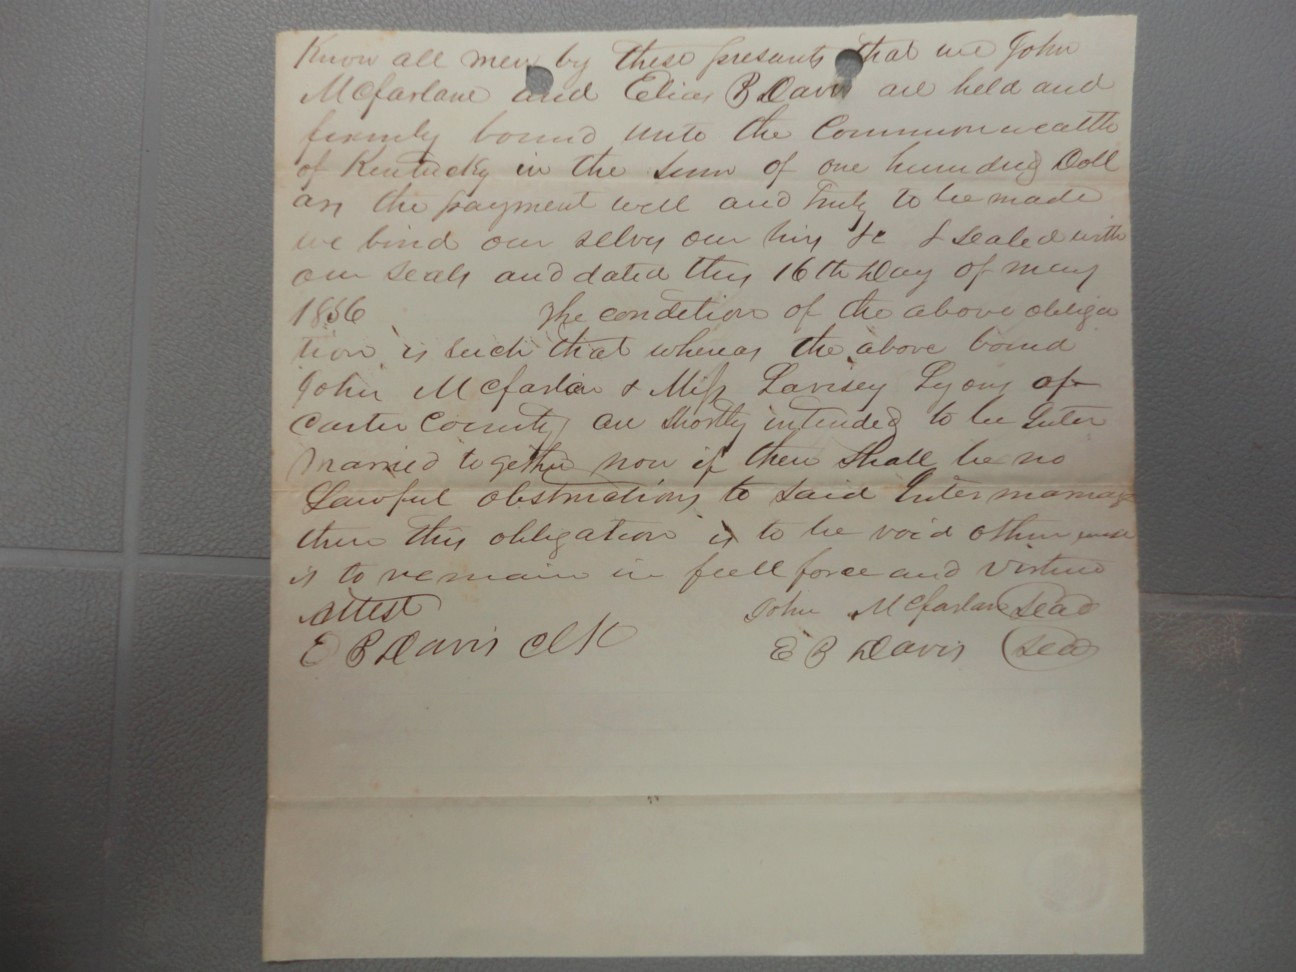 Know all men by these presents that we John
McFarlane and Elias B Davis are held and
firmly bound unto the Commonwealth
of Kentucky in the sum of one hundred Doll
ars the payment well and truly to be made
we bind our selves our hirs &c & sealed with
our seals and dated this 16th Day of may
1856 The condition of the above obliga
tion is such that whereas the above bound
John McFarlan & Miss Lavisey Lyons of
Carter County are shortly intended to be Inter
married together now if there shall be no
Lawful obstructions to said Intermarriage
then this obligation is to be void otherwise
is to remain in full force and virtue
Attest John McFarlane Seal
E B Davis Clk E B Davis Seal